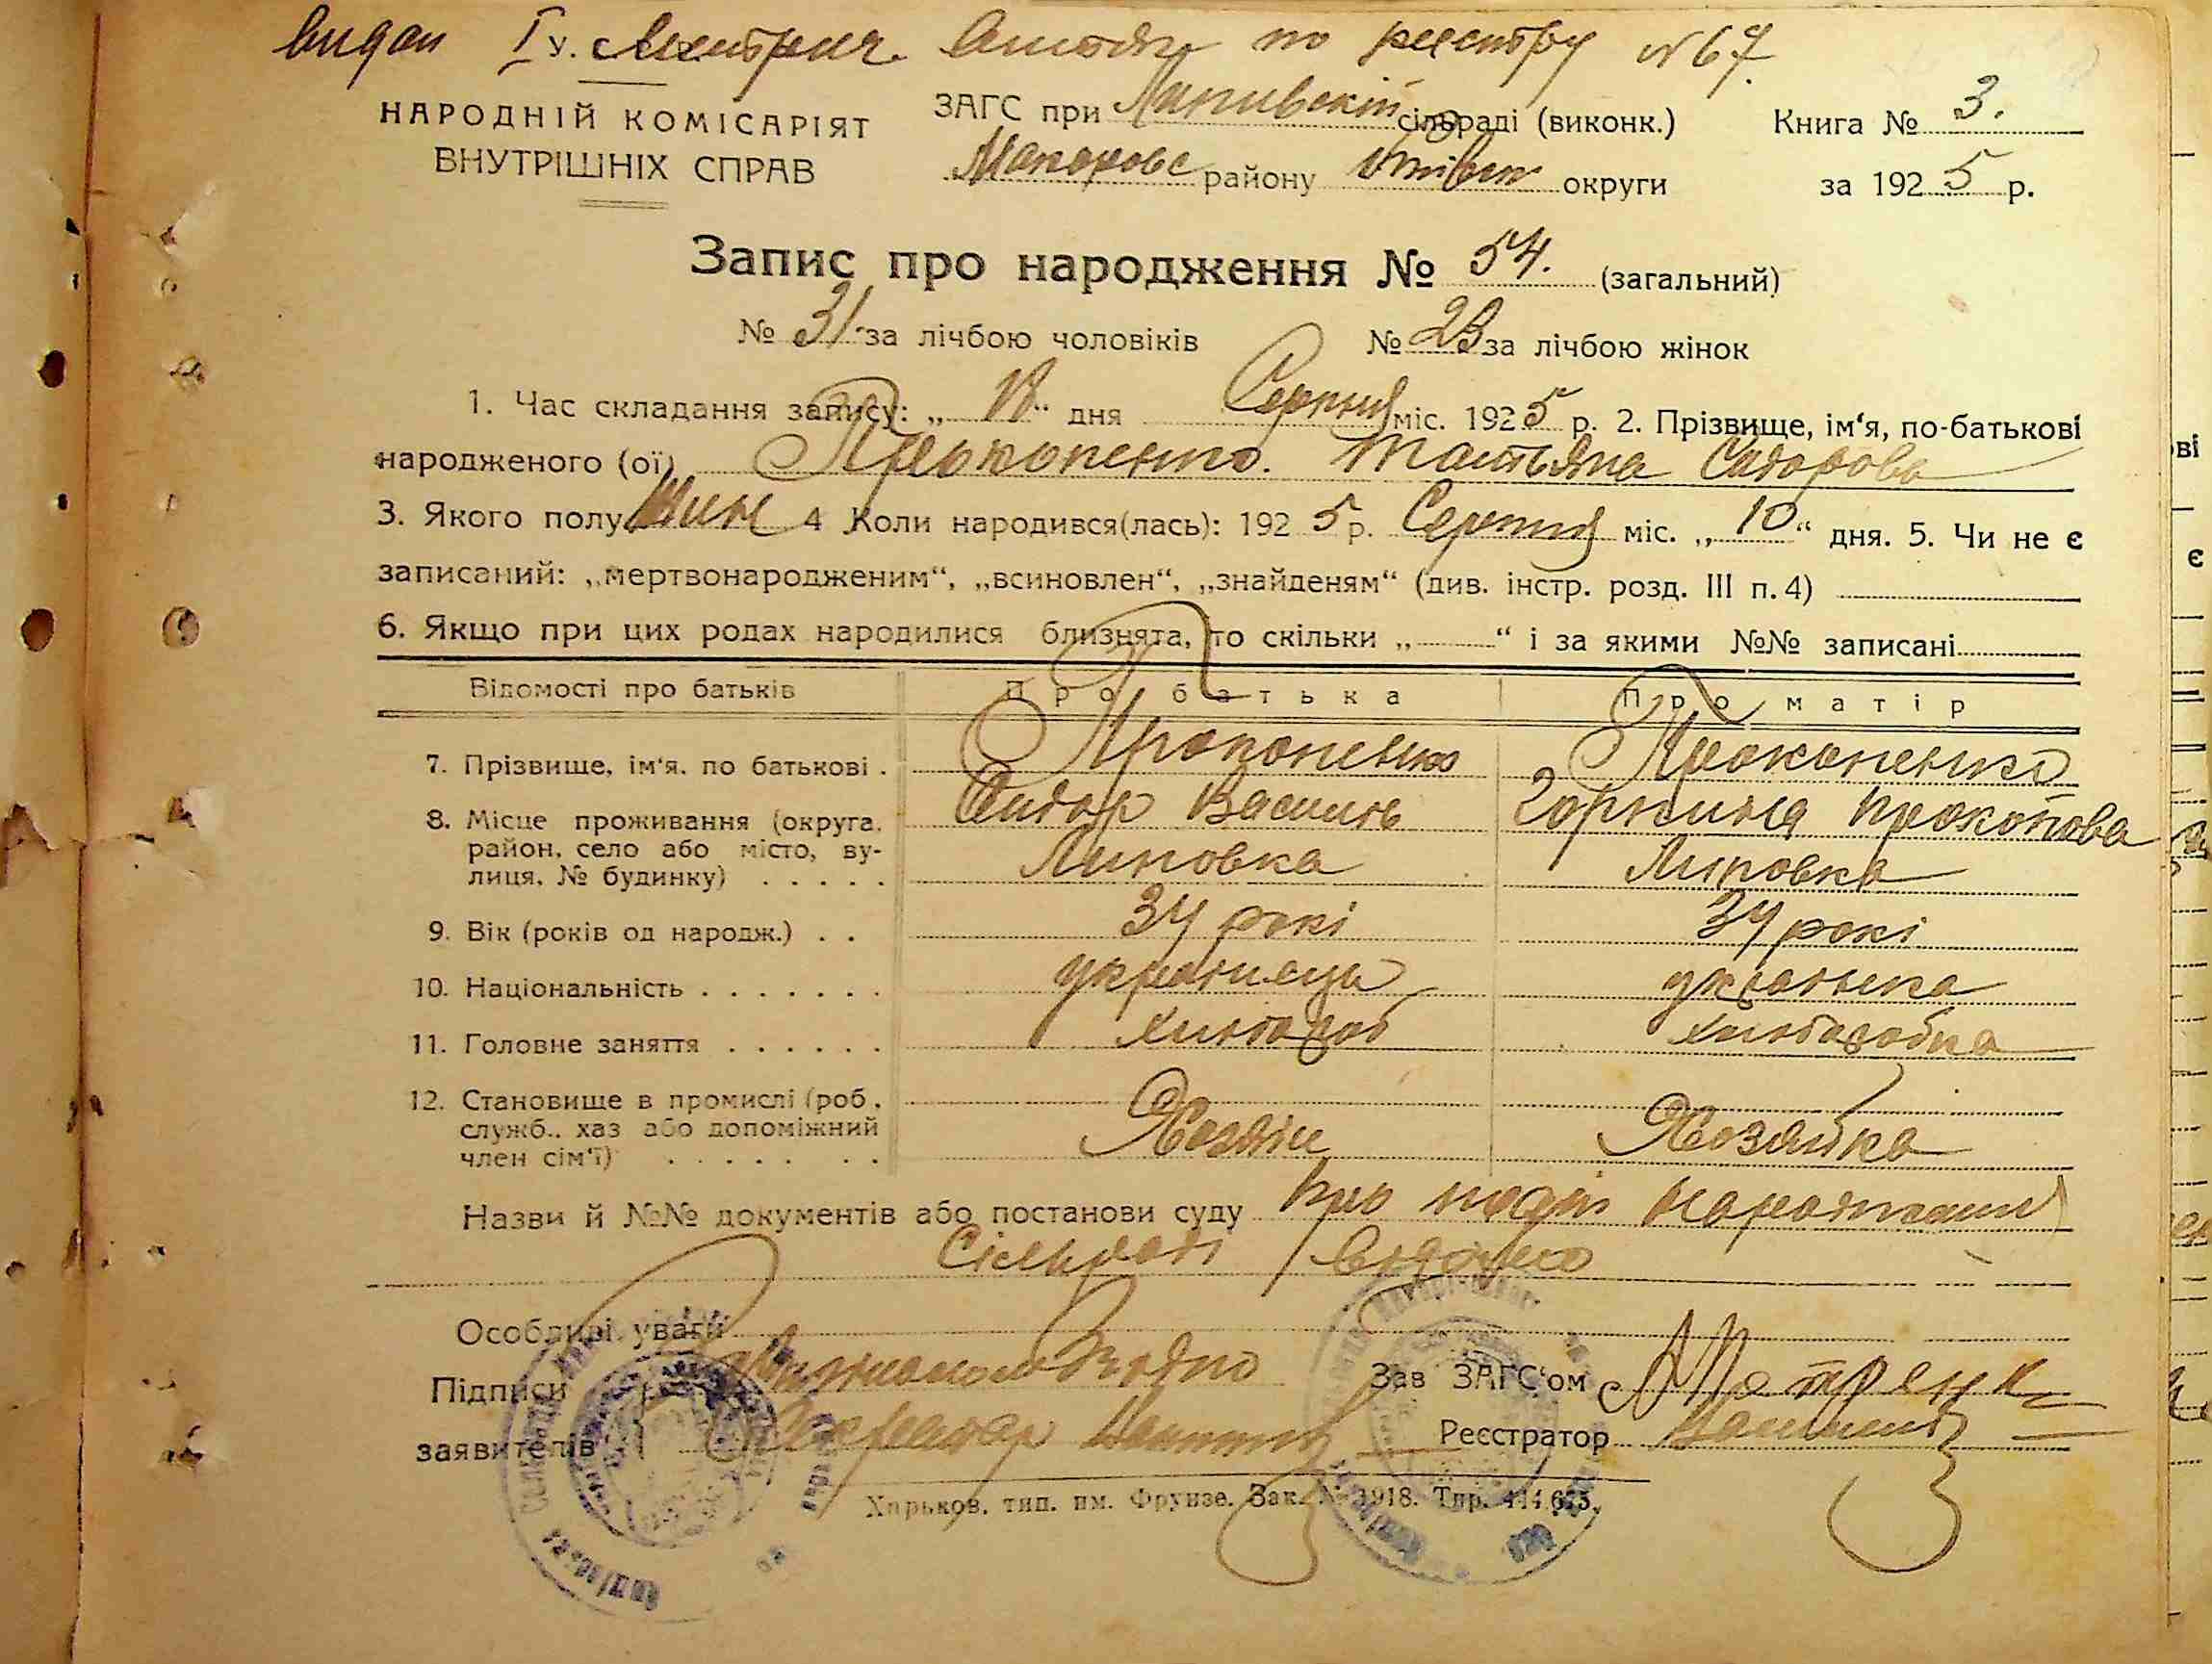 видан І у. метрич. витяг по реєстру №67.
НАРОДНІЙ КОМІСАРІЯТ
ВНУТРІШНІХ СПРАВ
ЗАГС при Липивскій сільраді (виконк.)
Макаровс району Київськ округи
Книга № 3.
за 1925 р.
Запис про народження № 54. (загальний)
№ 31 за лічбою чоловіків № 23 за лічбою жінок
1. Час складання запису: „ 18 “ дня Серпня міс. 1925 р. 2. Прізвище, ім‘я, по-батькові
народженого (ої) Прокопенко. Татьяна Сидорова
3. Якого полу жин 4 Коли народився(лась): 1925 р. Серпня міс. „ 10 “ дня. 5. Чи не є
записаний: „мертвонародженим“, „всиновлен“, „знайденям“ (див. інстр. розд. III п. 4)
6. Якщо при цих родах народилися близнята, то скільки „ — “ і за якими №№ записані
Відомості про батьків Про батька Про матір
7. Прізвище, ім‘я, по батькові . Прокопенко Прокопенко
Сидор Василь Горпина Прокопова
8. Місце проживання (округа,
район, село або місто, ву-
лиця, № будинку) . . . . . Липовка Липовка
9. Вік (років од народж.) . . 34 рокі 34 рокі
10. Національність . . . . . . . українець українька
11. Головне заняття . . . . . . хлібороб хліборобка
12. Становище в промислі (роб.,
служб., хаз або допоміжний
член сім‘ї) . . . . . . . Хозяін Хозяйка
Назви й №№ документів або постанови суду Про подію народження
Сільраді видано
Особливі уваги
Підписи
заявителів Секретар
Зав ЗАГС‘ом Петренк
Реєстратор
Харьков, тип. им. Фрунзе. Зак. № 1918. Тир. 414.675.